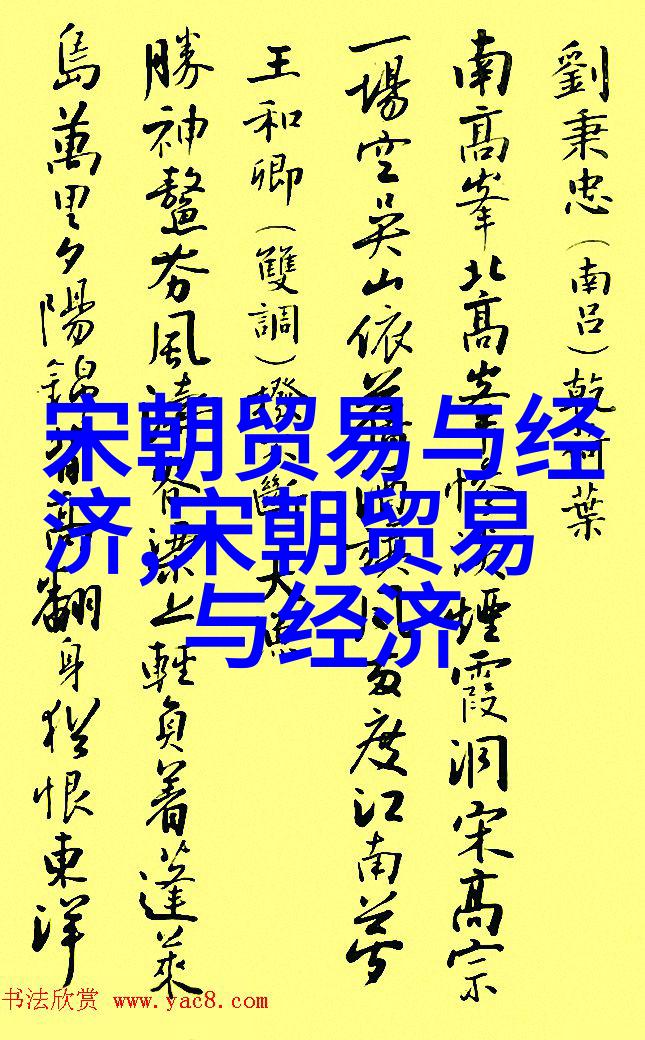 劉秉忠（南呂）乾荷葉
南高峯北高峯惨淡煙霞洞宋高宗
一場空吳山依舊酒旗風兩度江南夢
王和卿（雙調）撥不斷大魚
勝神鰲夯風濤脊梁上輕負着蓬萊
島萬里夕陽錦背高翻身猶恨東洋
宋朝贸易与经
济,宋朝贸易
与经济
书法欣赏 www.yac8.com